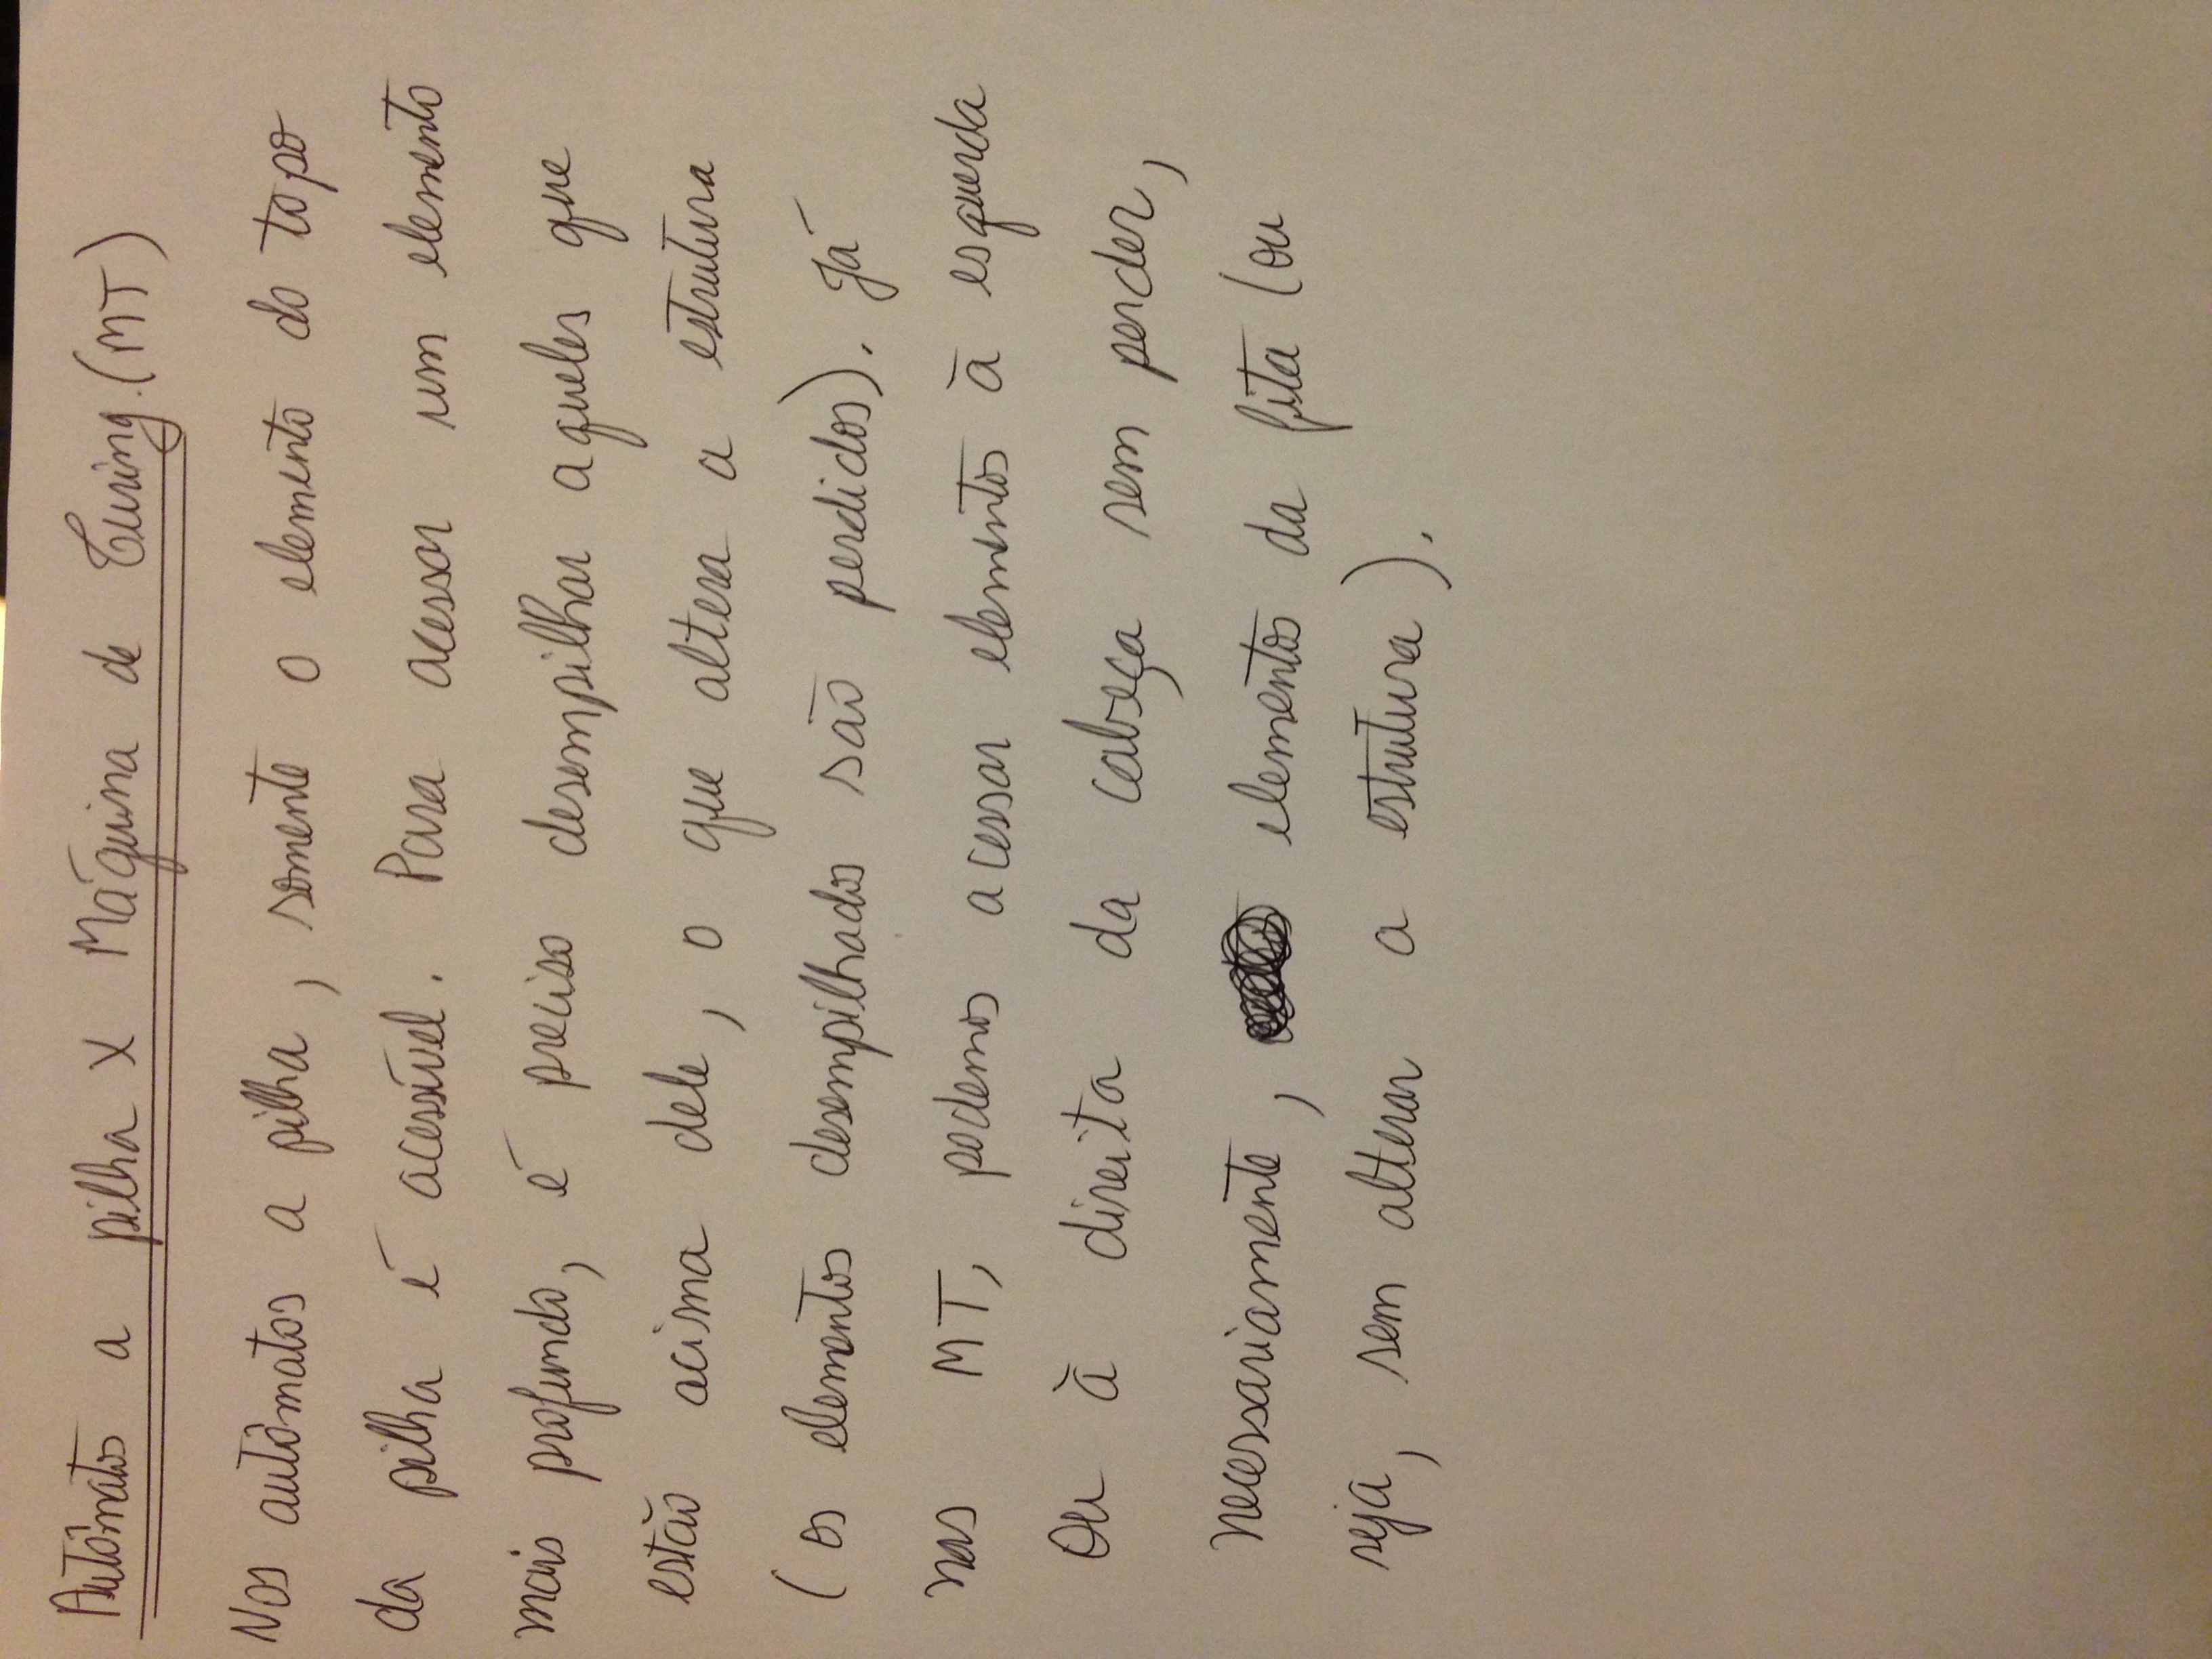 Autômatos a pilha X Máquina de Turing. (MT)
Nos autômatos a pilha, somente o elemento do topo
da pilha é acessível. Para acessar um elemento
mais profundo, é preciso desempilhar aqueles que
estão acima dele, o que altera a estrutura
(os elementos desempilhados são perdidos). Já
nas MT, podemos acessar elementos à esquerda
ou à direita da cabeça sem perder,
necessariamente, elementos da fita (ou
seja, sem alterar a estrutura).